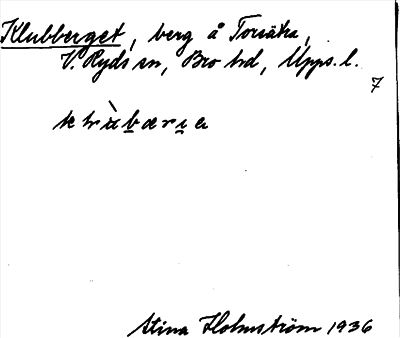 Klubberget, berg å Torsätra,
V. Ryds sn, Bro hd, Upps. l.
7
Stina Holmström 1936